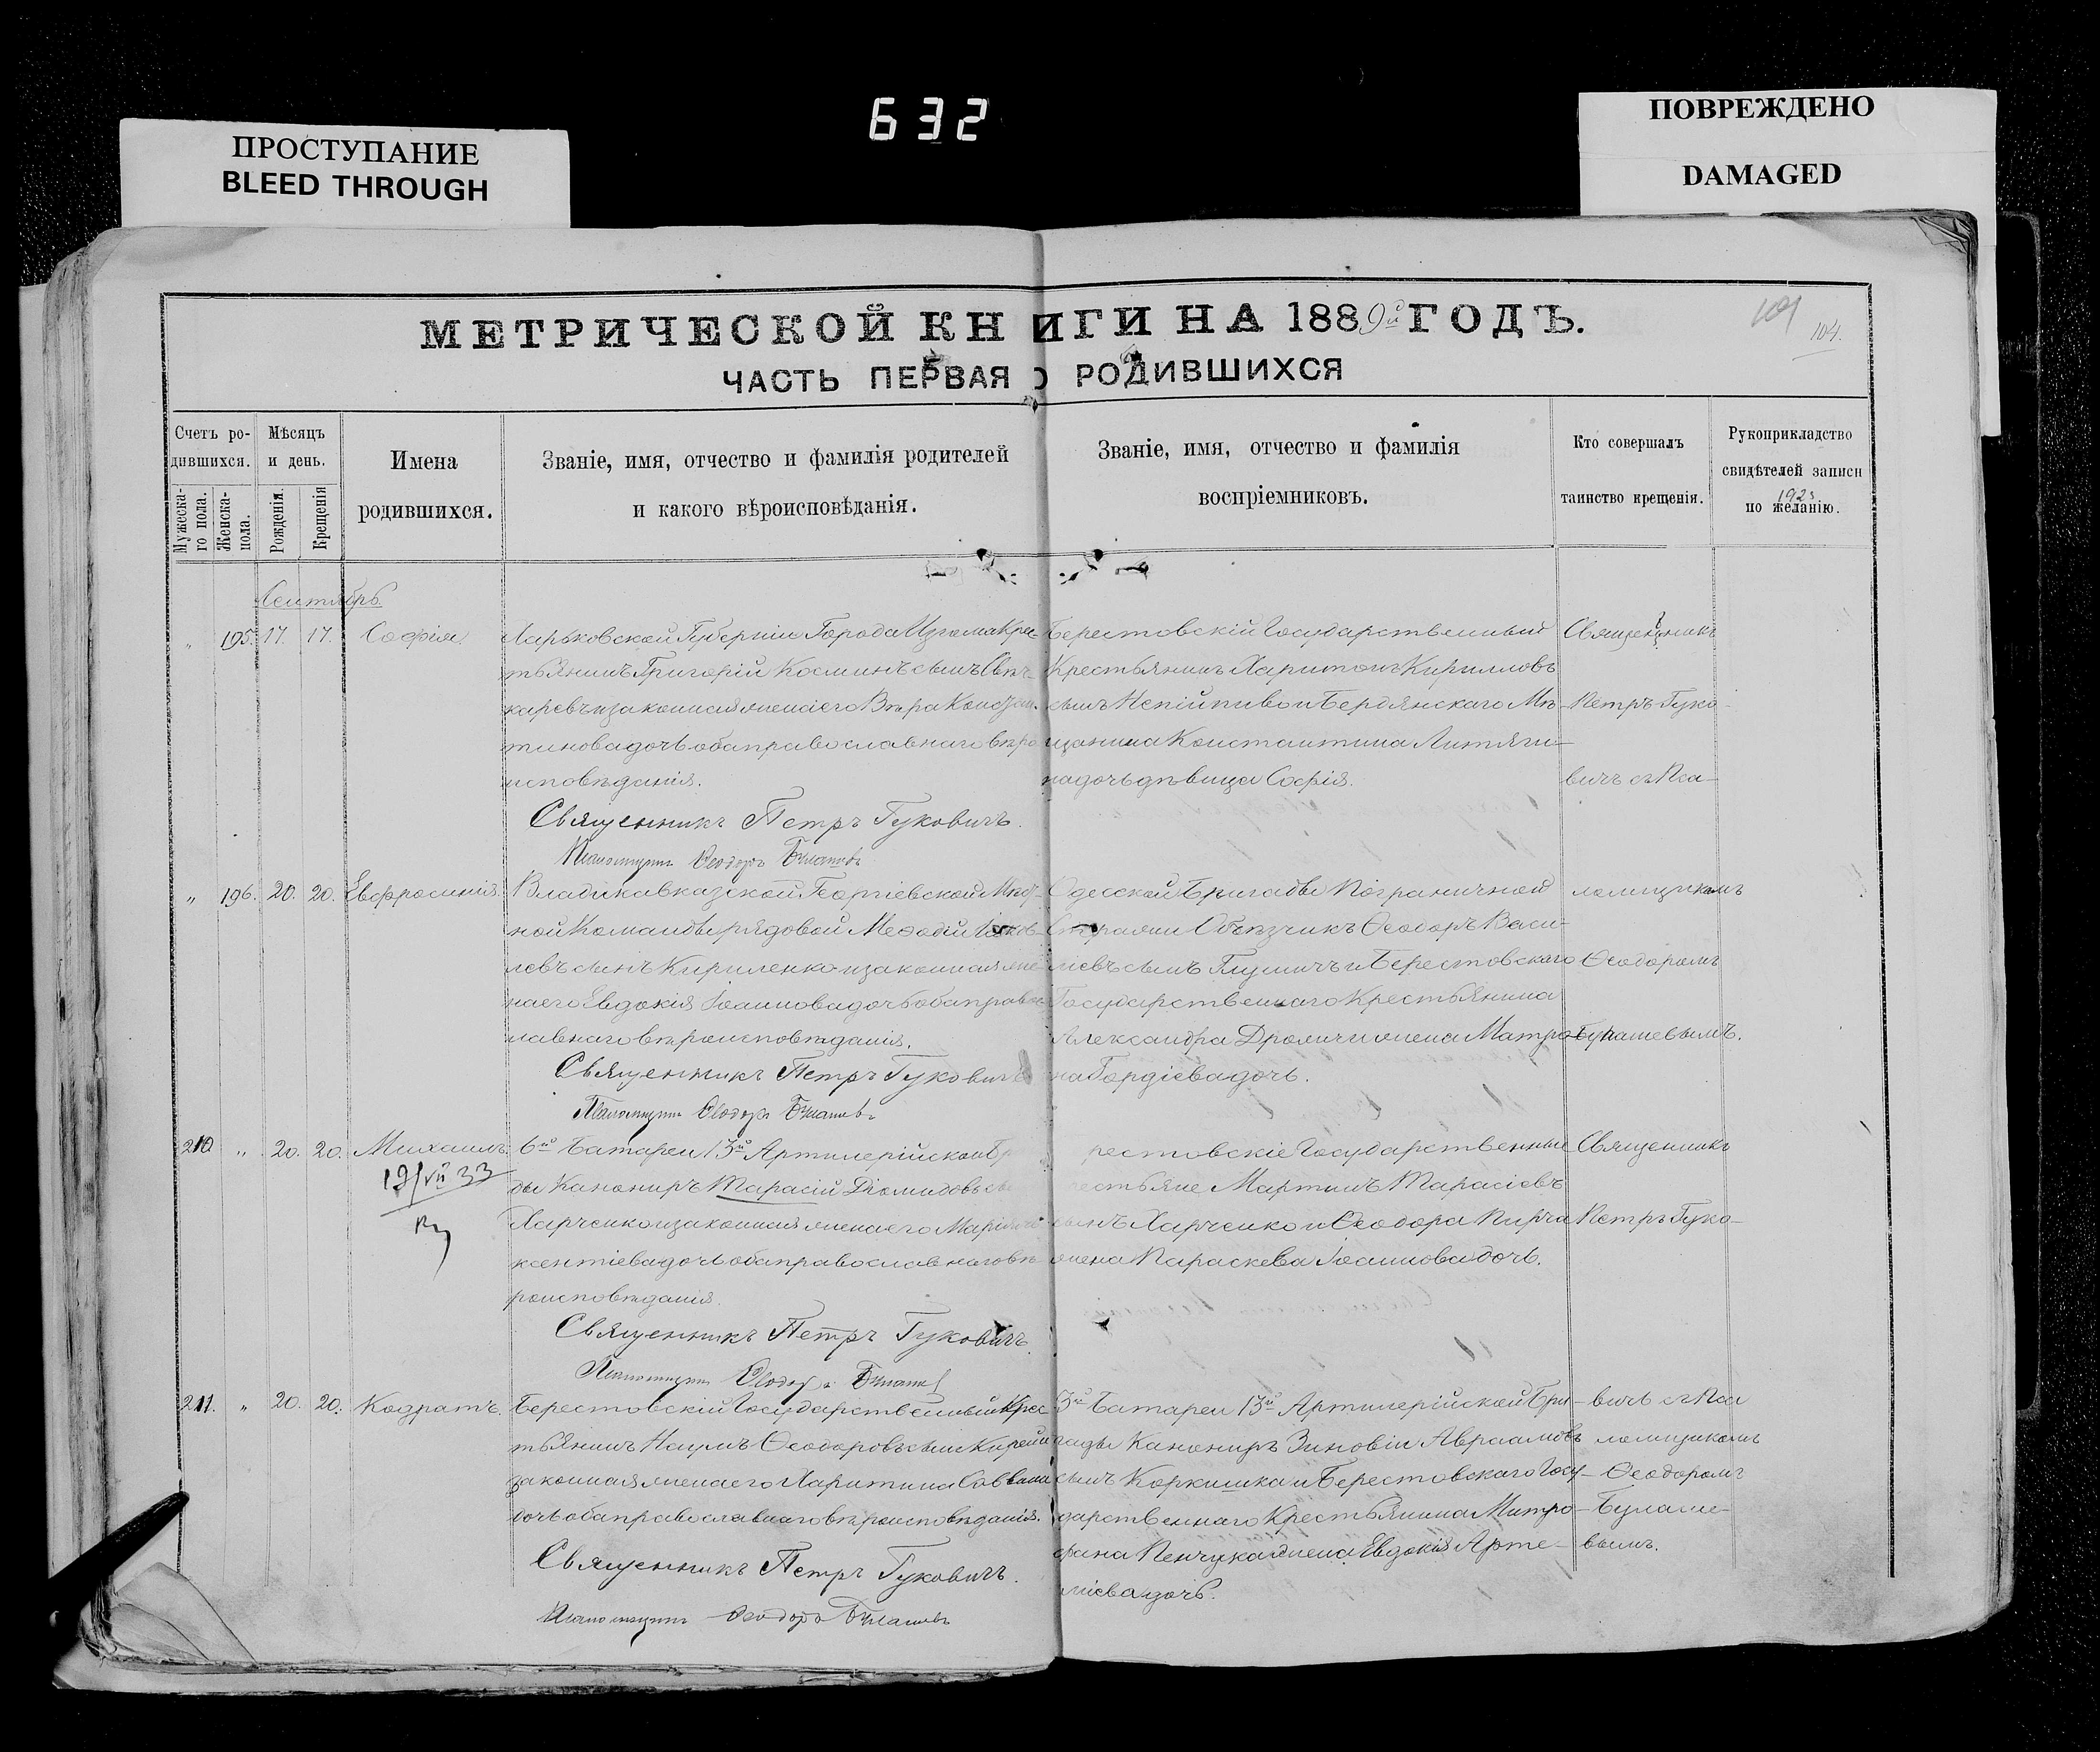 632
ПРОСТУПАНИЕ
BLEED THROUGH
ПОВРЕЖДЕНО
DAMAGED
МЕТРИЧЕСКОЙ КНИГИ НА 1889й ГОДЪ.
104.
ЧАСТЬ ПЕРВАЯ О РОДИВШИХСЯ
Счетъ ро-
дившихся.
Мужеска-
го пола.
Женска-
пола.
Мѣсяцъ
и день.
Рожденія.
Крещенія
Имена
родившихся.
Званіе, имя, отчество и фамилія родителей
и какого вѣроисповѣданія.
Званіе, имя, отчество и фамилія
воспріемниковъ.
Кто совершалъ
таинство крещенія.
Рукоприкладство
свидѣтелей записи
по желанію.
Сентябрь
„ 195. 17. 17. София
Харьковской Губерніи Города Изюма Крес-
тьянинъ Григорій Косминъ сынъ
и законная жена его Вѣра Констан-
тинова дочь оба православнаго вѣро
исповѣданія.
Священникъ Петръ Гуковичъ.
Псаломщикъ Ѳеодоръ Булашевъ
Берестовскій Государственный
Крестьянинъ Харитонъ Кирилловъ
сынъ Непійпиво и Бердянскаго Мѣ-
щанина Константина Литяги-
на дочь дѣвица Софія.
Священникъ
Петръ Гуко-
вичъ съ Пса-
„ 196. 20. 20. Евфросинія
Владикавказской Георгіевской Мѣст-
ной Команды рядовой Меѳодій
левъ сынъ Кириленко и законная же
на его Евдокія Іоаннова дочь оба правос
лавнаго вѣроисповѣданія.
Священникъ Петръ Гуковичъ
Псаломщикъ Ѳеодоръ Булашевъ
Одесской Бригады Пограничной
Стражи Объѣзчикъ Ѳеодоръ Васи-
ліевъ сынъ и Берестовскаго
Государственнаго Крестьянина
Александра жена Матро-
на Гордіева дочь.
ломщикомъ
Ѳеодоромъ
Булашевымъ.
210 „ 20. 20. Михаилъ.
19/VII 33
6й Батареи 13й Артилерійской Бр
ды Канониръ Тарасій Діомидовъ сы
Харченко и законная жена его Марія
кентіева дочь оба православнаго вѣ
роисповѣданія.
Священникъ Петръ Гуковичъ.
Псаломщикъ Ѳеодоръ Булашев
рестовскіе Государственные
естьяне Мартинъ Тарасіевъ
сынъ Харченко и Ѳеодора
жена Параскева Іоаннова дочь.
Священникъ
Петръ Гуко-
211. „ 20. 20. Кодратъ.
Берестовскій Государственный Крес
тьянинъ Наумъ Ѳеодоровъ сынъ
законная жена его Харитина Саввина
дочь оба православнаго вѣроисповѣданія.
Священникъ Петръ Гуковичъ.
Псаломщикъ Ѳеодоръ Булашевъ
3й Батареи 13й Артилерійской Бри-
гады Канониръ Зиновій Авраамовъ
сынъ Коркишка и Берестовскаго Госу-
дарственнаго Крестьянина Митро-
фана Пенчука жена Евдокія Арте-
міева дочь.
вичъ съ Пса
ломщикомъ
Ѳеодоромъ
Булаше-
вымъ.